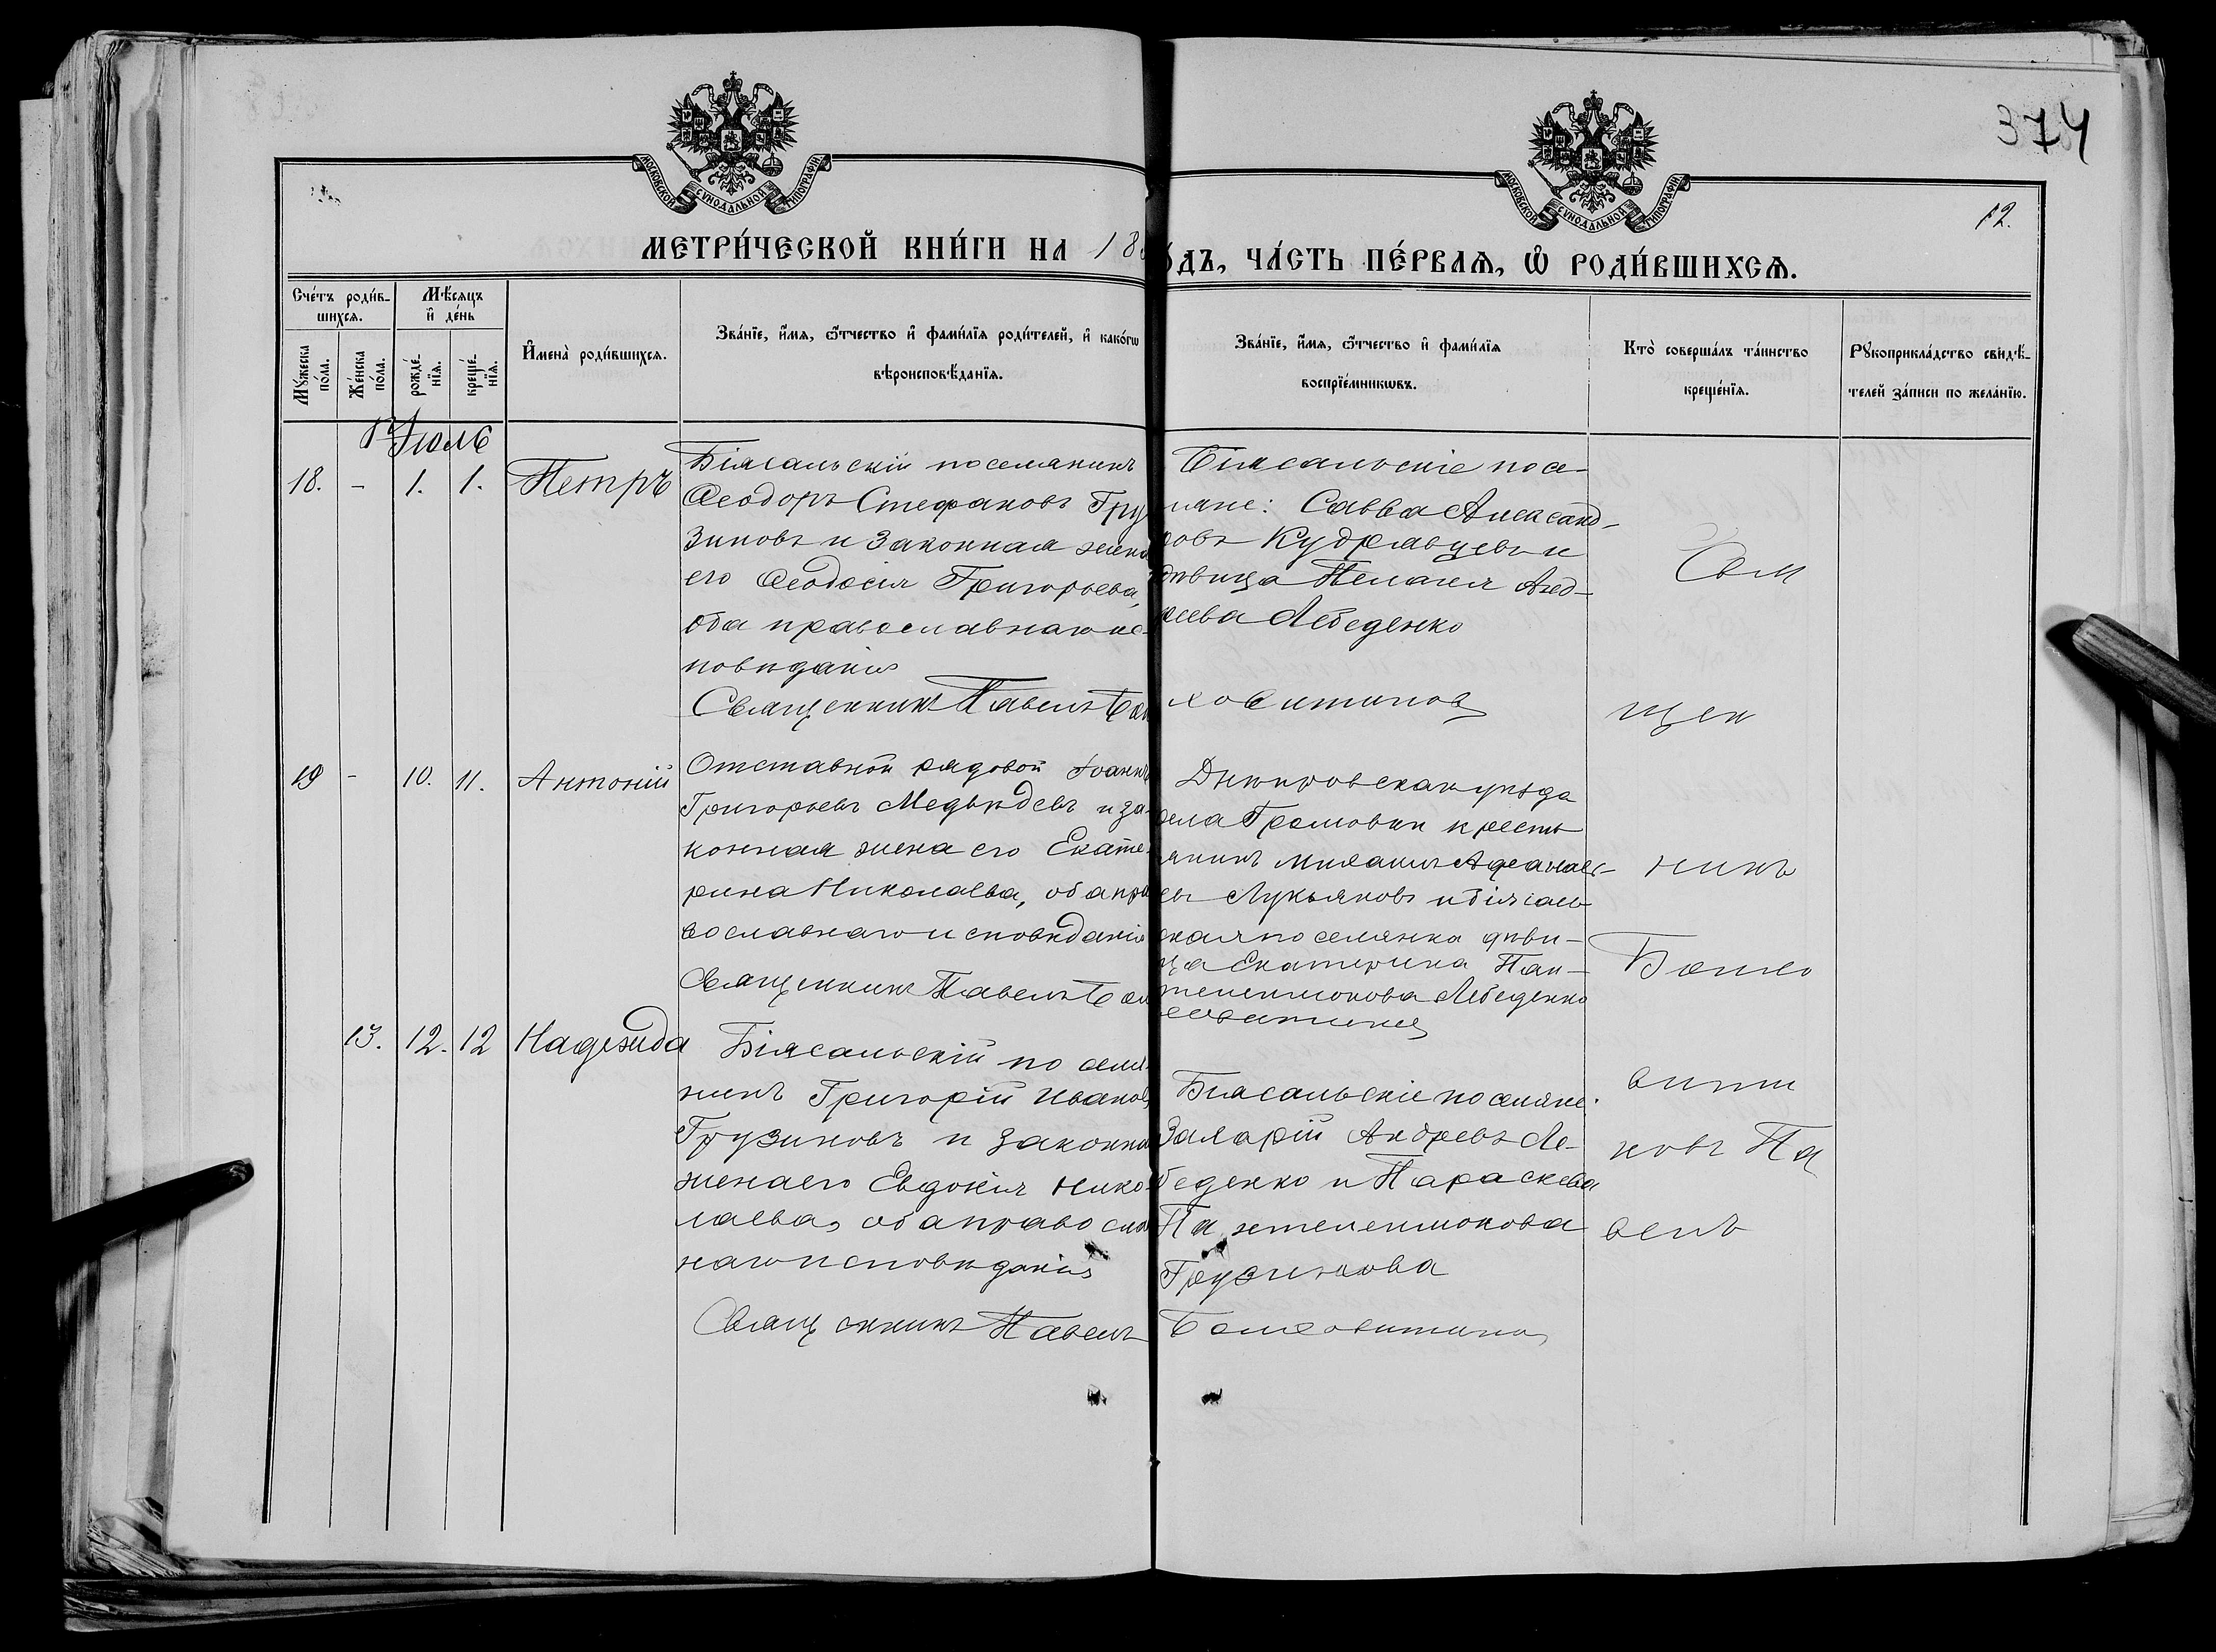 374
12.
МОСКОВСКОЙ СѴНОДАЛЬНОЙ ТИПОГРАФІИ
МОСКОВСКОЙ СѴНОДАЛЬНОЙ ТИПОГРАФІИ
МЕТРИ́ЧЕСКОЙ КНИ́ГИ НА 18
ОДЪ, ЧА́СТЬ ПЕ́РВАЯ, Ѡ РОДИ́ВШИХСЯ.
Сче́тъ роди́в-
шихся.
Мꙋ́жеска по́ла.
Же́нска по́ла.
Мѣ́сяцъ
и҆ де́нь
рожде́нїя.
креще́нїя.
И҆мена̀ роди́вшихся.
Зва́нїе, и҆́мя, ѻ҆́тчество и҆ фами́лїя роди́телей, и҆ како́гѡ
вѣроисповѣ́данїя.
Зва́нїе, и҆́мя, ѻ҆́тчество и҆ фами́лїя
воспрїе́мникѡвъ.
Кто̀ соверша́лъ та́инство
креще́нїя.
Рꙋкоприкла́дство свидѣ́-
телей за́писи по жела́нїю.
Июль
18. - 1. 1. Петръ
Біясальскій поселянинъ
Ѳеодоръ Стефановъ Гру
зиновъ и законная жена
его Ѳеодосія Григорьева,
оба православнаго ис-
повѣданія
Священникъ Павелъ Бол
Біясальскіе посе-
ляне: Савва Александ-
ровъ Кудрявцевъ и
дѣвица Пелагія Анд-
реева Лебеденко
ховитиновъ
19 - 10. 11. Антоній
Отставной рядовой Іоаннъ
Григорьевъ Медвѣдевъ и за-
конная жена его Екате-
рина Николаева, оба пра
вославнаго исповѣданія
Священникъ Павелъ Бол
Днѣпровскаго уѣзда
села Громовки кресть
янинъ Михаилъ Афанась-
евъ Лукьяновъ и біясаль
ская поселянка дѣви-
ца Екатерина Пан-
телеимонова Лебеденко
ховитиновъ
13. 12. 12 Надежда
Біясальскій поселя-
нинъ Григорій Ивановъ
Грузиновъ и законная
жена его Евдокія Нико-
лаева, оба православ
наго исповѣданія
Священникъ Павелъ
Біясальскіе поселяне:
Андреевъ Ле-
беденко и Параскева
Пантелеимонова
Грузинова
Болховитиновъ
Свя
щен
никъ
Болхо
вити
новъ Па
велъ